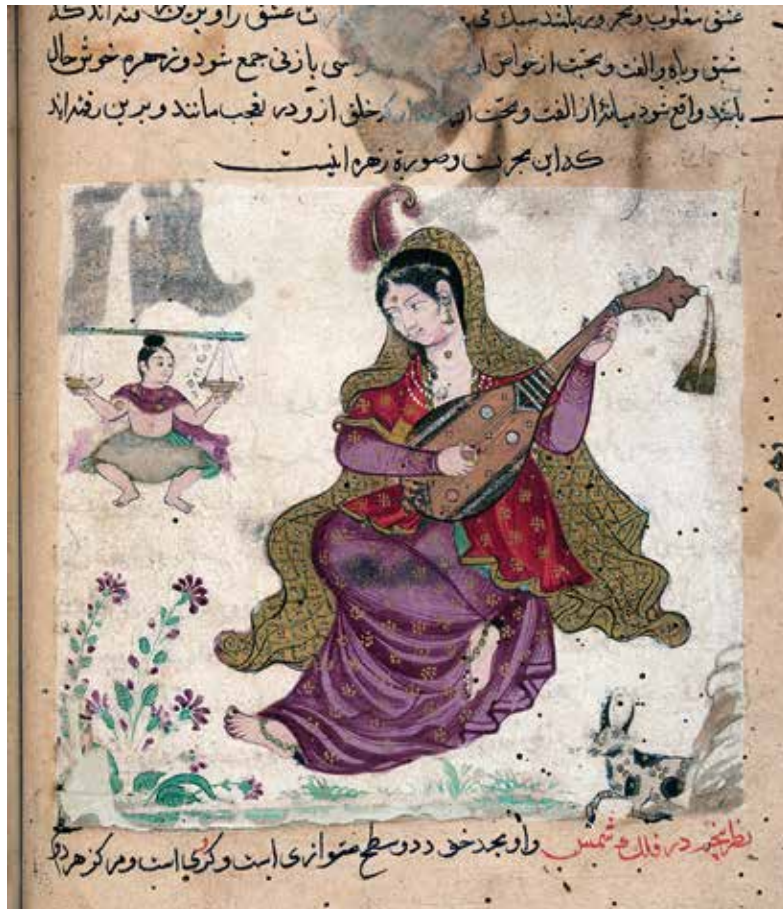 عشق مغلوب و بحر و بر بلند سبک می ت عشق را و برین رفته اند که
شبق و باه و الفت و محبت از خواص او سی با زنی جمع شود و زهره خوش حال
باشد واقع شود میانهٔ از الفت و محبت ان که خلق ازو در تعجب مانند و برین رفته اند
که این مجربست و صورة زهره اینست
زهره
نظر پنجم در فلک شمس و او بحد خود دو سطح متوازی است و کروی است و مرکز هر دو